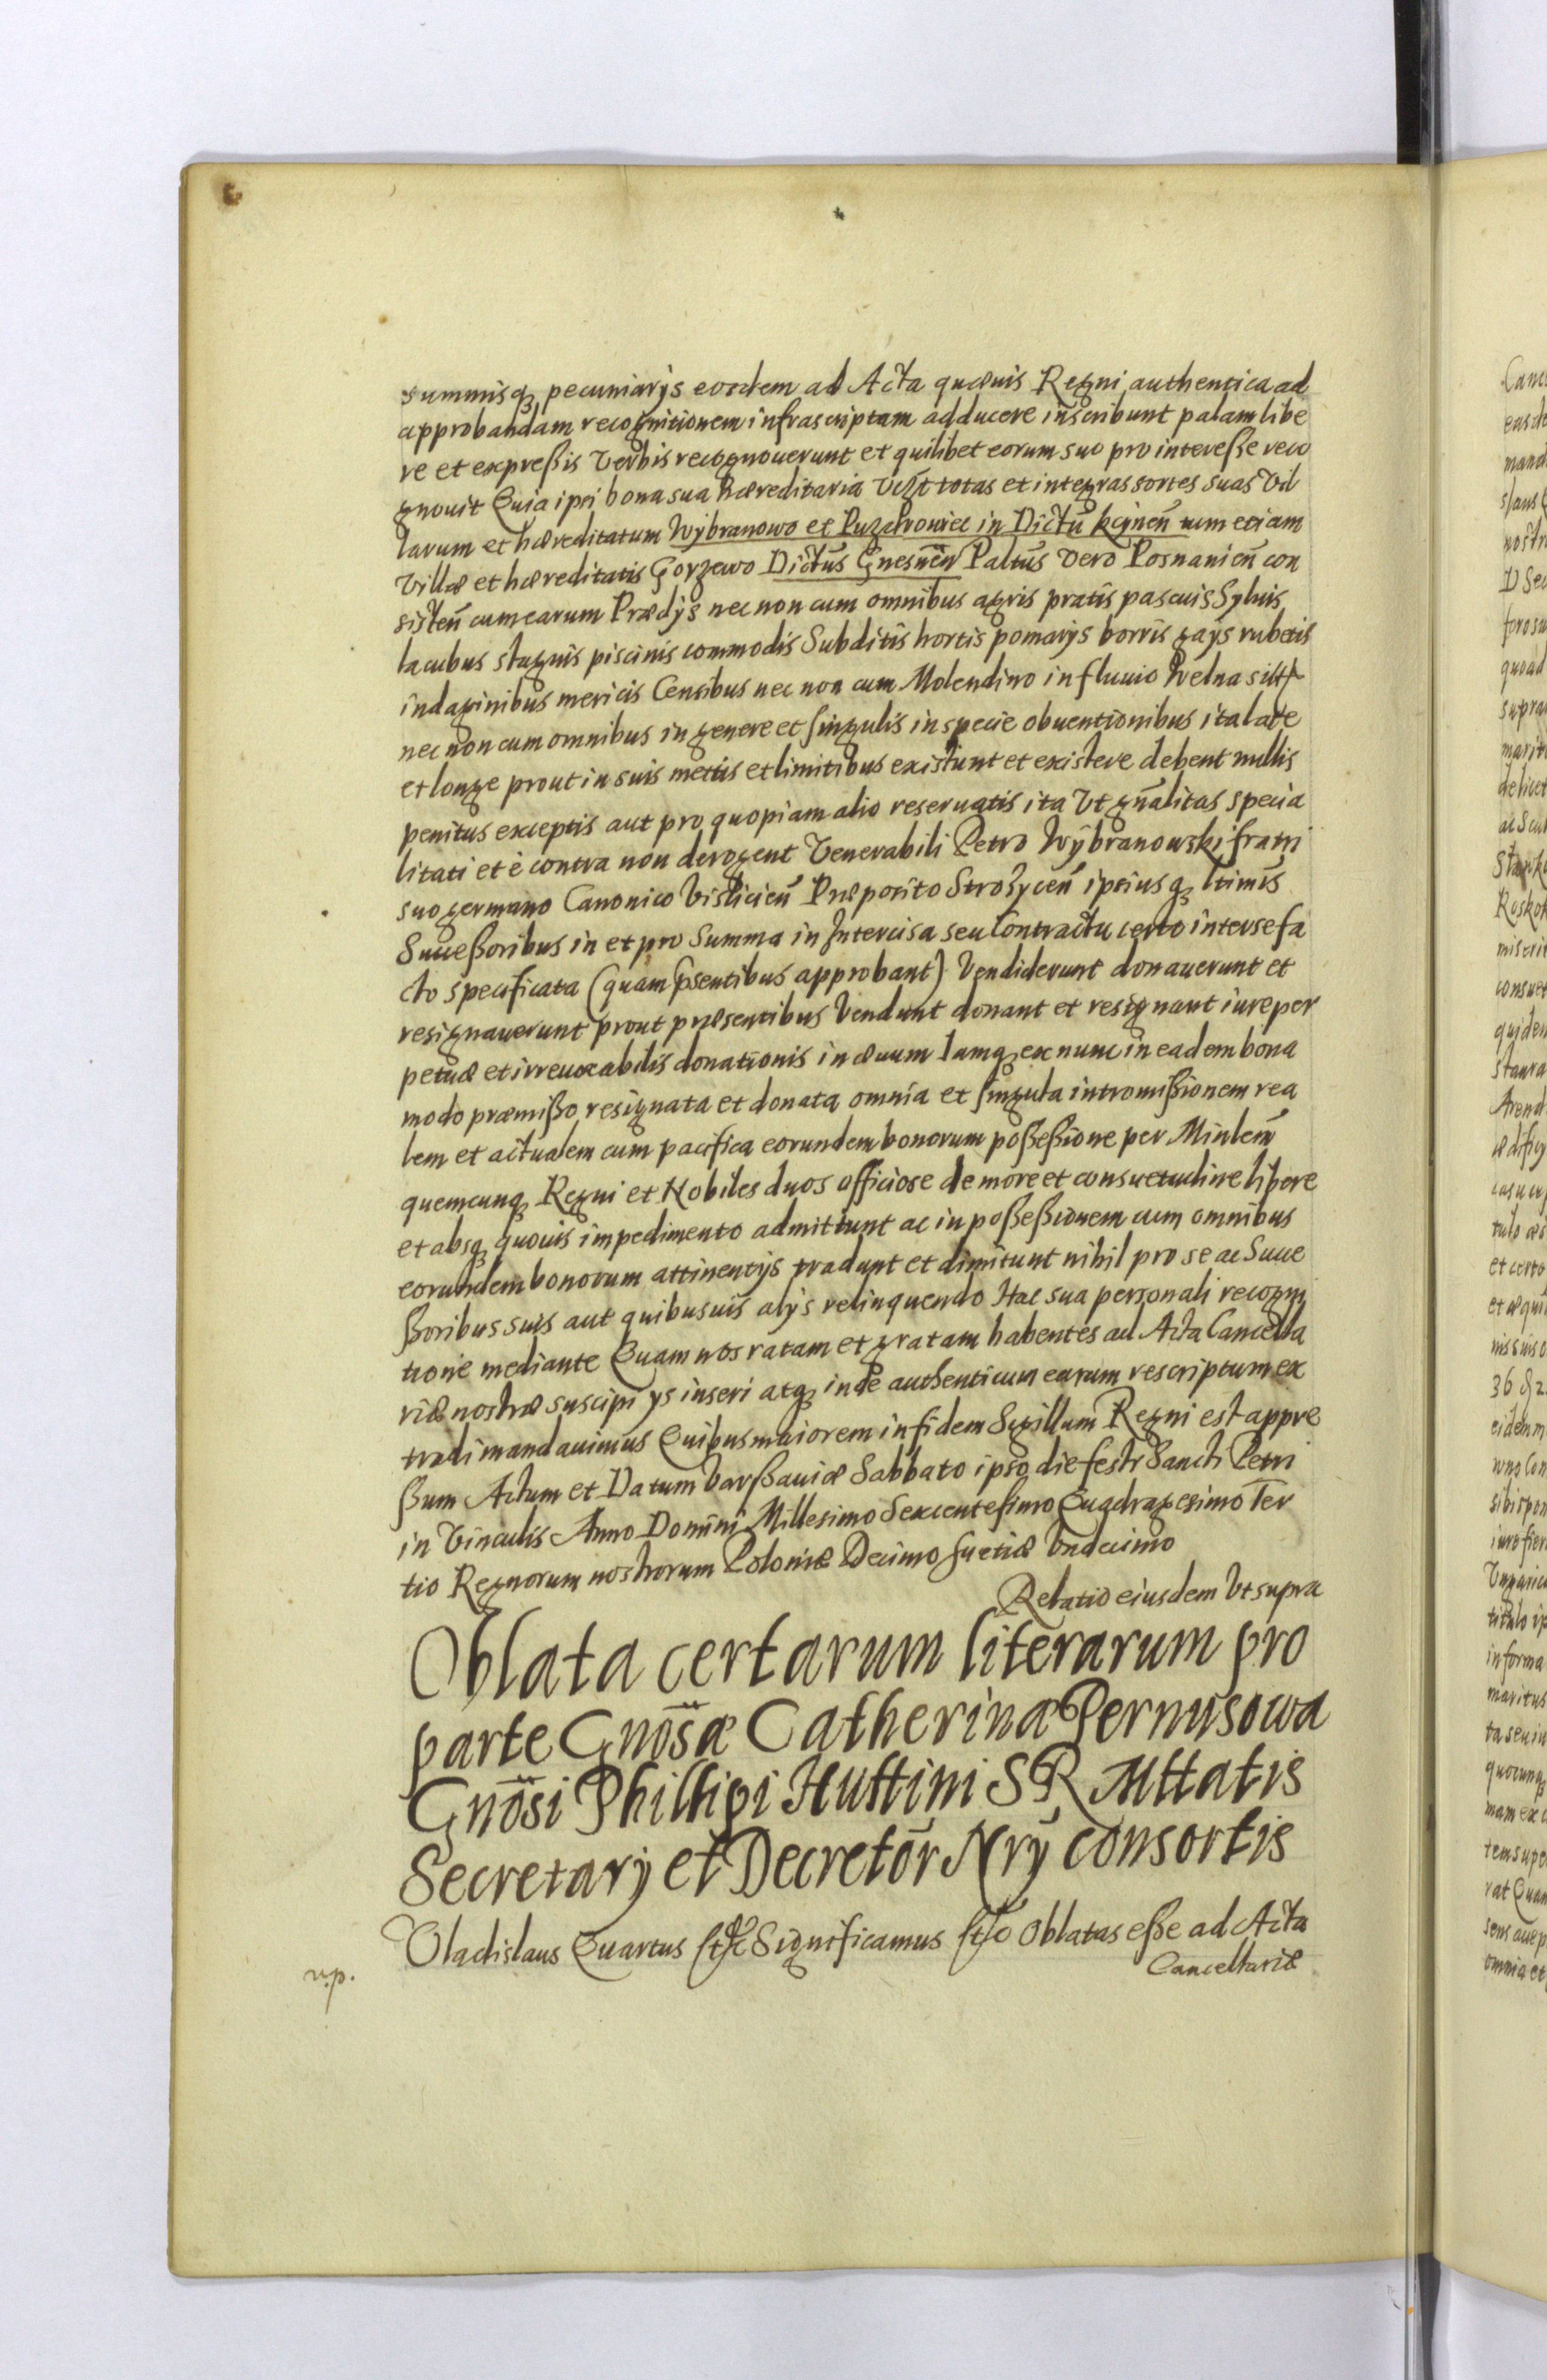 summisq pecuniarijs eosdem ad Acta quævis Regni authentica ad
approbandam recognitionem infrascriptam adducere inscribunt palam libe
re et expreßis Verbis recognouerunt et quilibet eorum suo pro intereße reco
gnouit Quia ipsi bona sua hæreditaria Vczt totas et integras sortes suas Vil
larum et hæreditatum Wÿbranowo et Puzdrowiec in Dictũ Kcÿneñ tum etiam
Villæ et hæreditatis Gorzewo Dictũs Gnesneñ Paltũs Vero Posnanieñ con
sisteñ cum earum Prædijs nec non cum omnibus agris pratis pascuis Syluis
lacubus stagnis piscinis commodis Subditis hortis pomarijs borris gaijs rubetis
indaginibus mericis Censibus nec non cum Molendino in fluuio Welna
nec non cum omnibus in genere et singulis in specie obuentionibus ita late
et longe prout in suis mettis et limitibus existunt et existere debent nullis
penitus exceptis aut pro quopiam alio reseruatis ita Vt gñalitas specia
litati et è contra non derogent Venerabili Petro Wÿbranowski fratri
suo germano Canonico Vislicieñ Præposito Strożyceñ ipsiusq ltimis
Succeßoribus in et pro Summa in Intercisa seu Contractu certo inter se fa
cto specificata (quam p̃sentibus approbant) Vendiderunt donauerunt et
resignauerunt prout præsentibus Vendunt donant et resignant iure per
petuæ et irreuocabilis donationis in æuum Iamq ex nunc in eadem bona
modo præmißo resignata et donata omnia et singula intromißionem rea
lem et actualem cum pacifica eorundem bonorum poßeßione per Minlem̃
quemcunq Regni et Nobiles duos officiose de more et consuetudine libere
et absq quouis impedimento admittunt ac in poßeßionem cum omnibus
eorundem bonorum attinentijs tradunt et dimitunt nihil pro se ac Succe
ßoribus suis aut quibusuis alijs relinquendo Hac sua personali recogni
tione mediante Quam nos ratam et gratam habentes ad Acta Cancella
riæ nostræ suscipi ijs inseri atq inde authenticum earum rescriptum ex
tradi mandauimus Quibus maiorem in fidem Sigillum Regni est appre
ßum Actum et Datum Varßauiæ Sabbato ipso die festi Sancti Petri
in Vinculis Anno Domini Millesimo Sexcentesimo Quadragesimo Ter
tio Regnorum nostrorum Poloniæ Decimo Suetiæ Vndecimo
Relatio eiusdem Vt supra
Oblata certarum literarum pro
parte Gnõsæ Catherinæ Pernusowa
Gnõsi Phillipi Huttini S R Mttatis
Secretarij et Decretõr Nrij consortis
Vladislaus Quartus Significamus Oblatas eße ad Acta
Cancellariæ